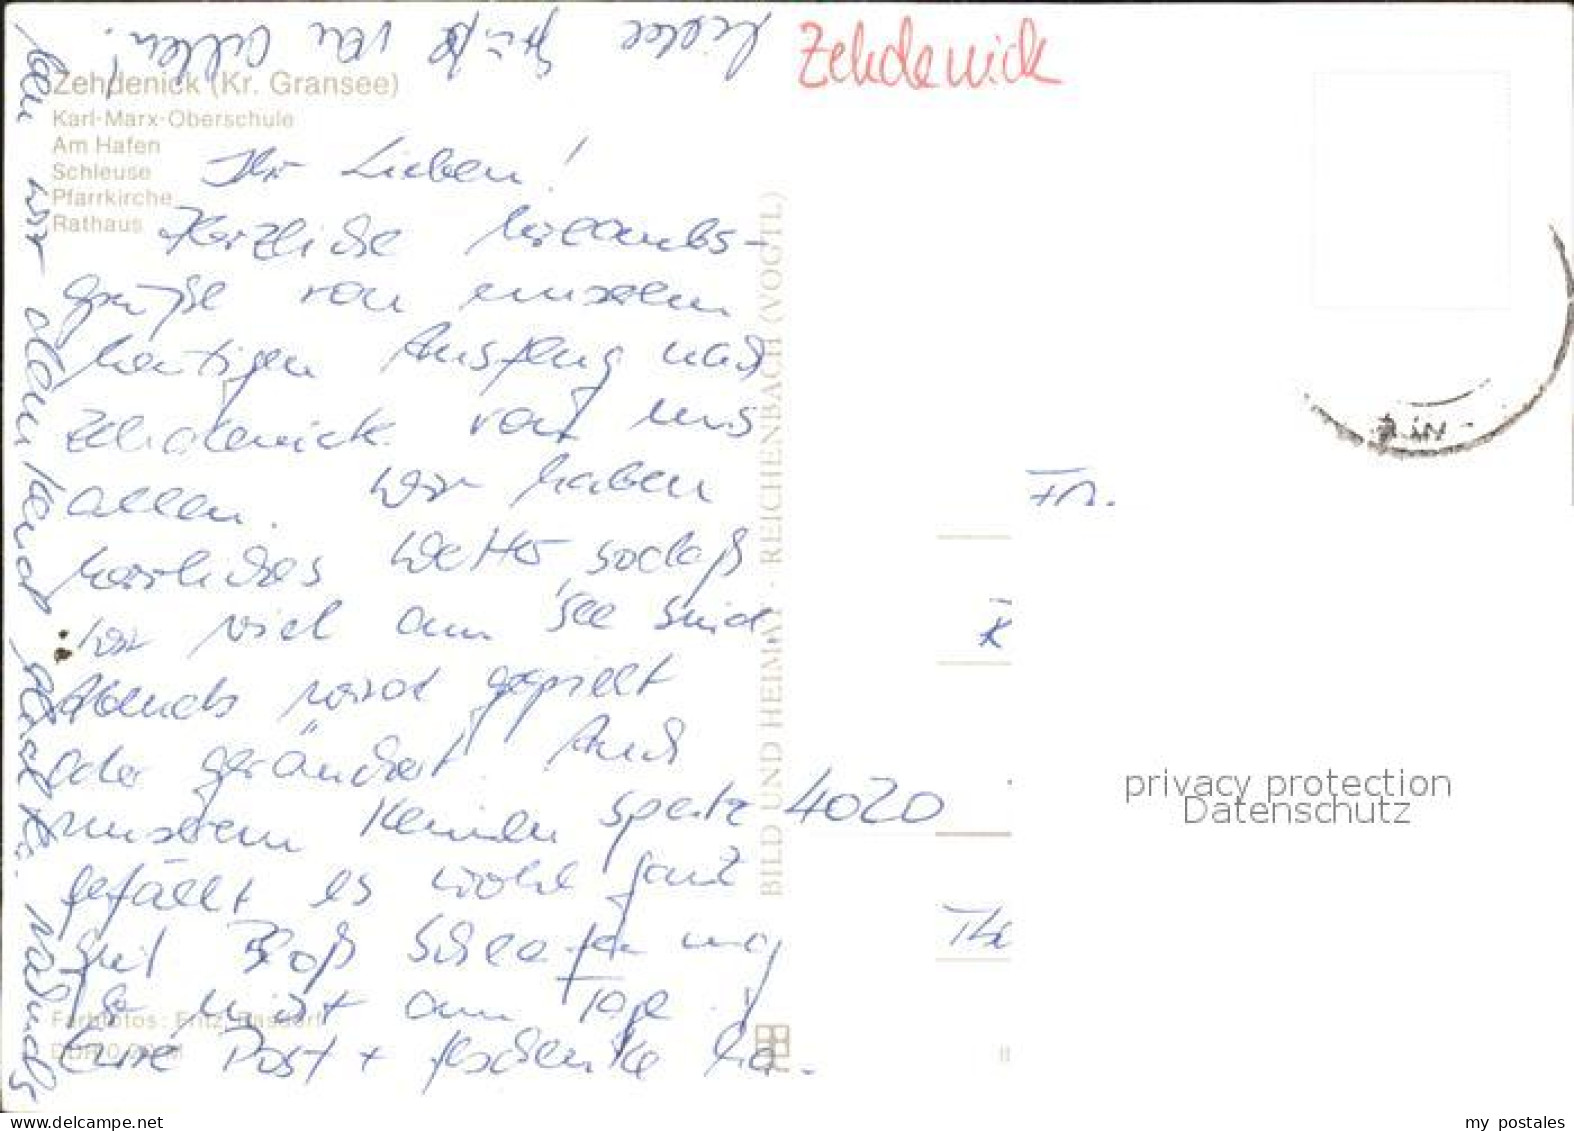 Zehdenick
Zehdenick (Kr. Gransee)
Karl-Marx-Oberschule
Am Hafen
Schleuse
Pfarrkirche
Rathaus
Ihr Lieben!
Herzliche Urlaubs-
grüße von unserem
heutigen Ausflug nach
Zehdenick von uns
allen. Wir haben
herrliches Wetter, sodaß
wir viel am See sind
Abends wird gespielt
oder geräuchert. Auch
unserem kleinen Spatz
gefällt es wohl ganz
gut Bloß schlafen mag
er nicht am Tage.
Eure Post + Geschenke ha-
ben wir dankend erhalten. Nochmals
Liebe Grüße von Allen!
Farbfotos: Fritz
BILD UND HEIMAT · REICHENBACH (VOGTL)
Fr.
K
4020
privacy protection
Datenschutz
my postales